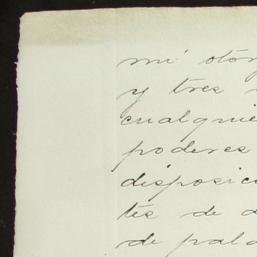 mi otor
y tres
cualquie
poderes
disposici
tes de a
de pala